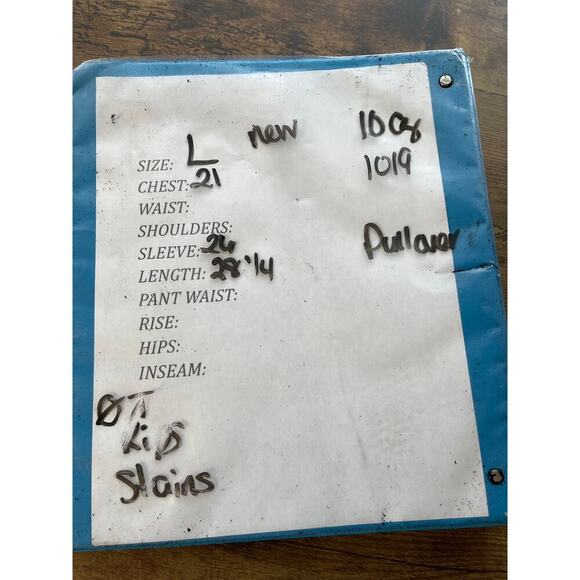 new 10 oz
SIZE: L 1019
CHEST: 21
WAIST:
SHOULDERS:
SLEEVE: 24 Pullover
LENGTH: 28 1/4
PANT WAIST:
RISE:
HIPS:
INSEAM:
Stains